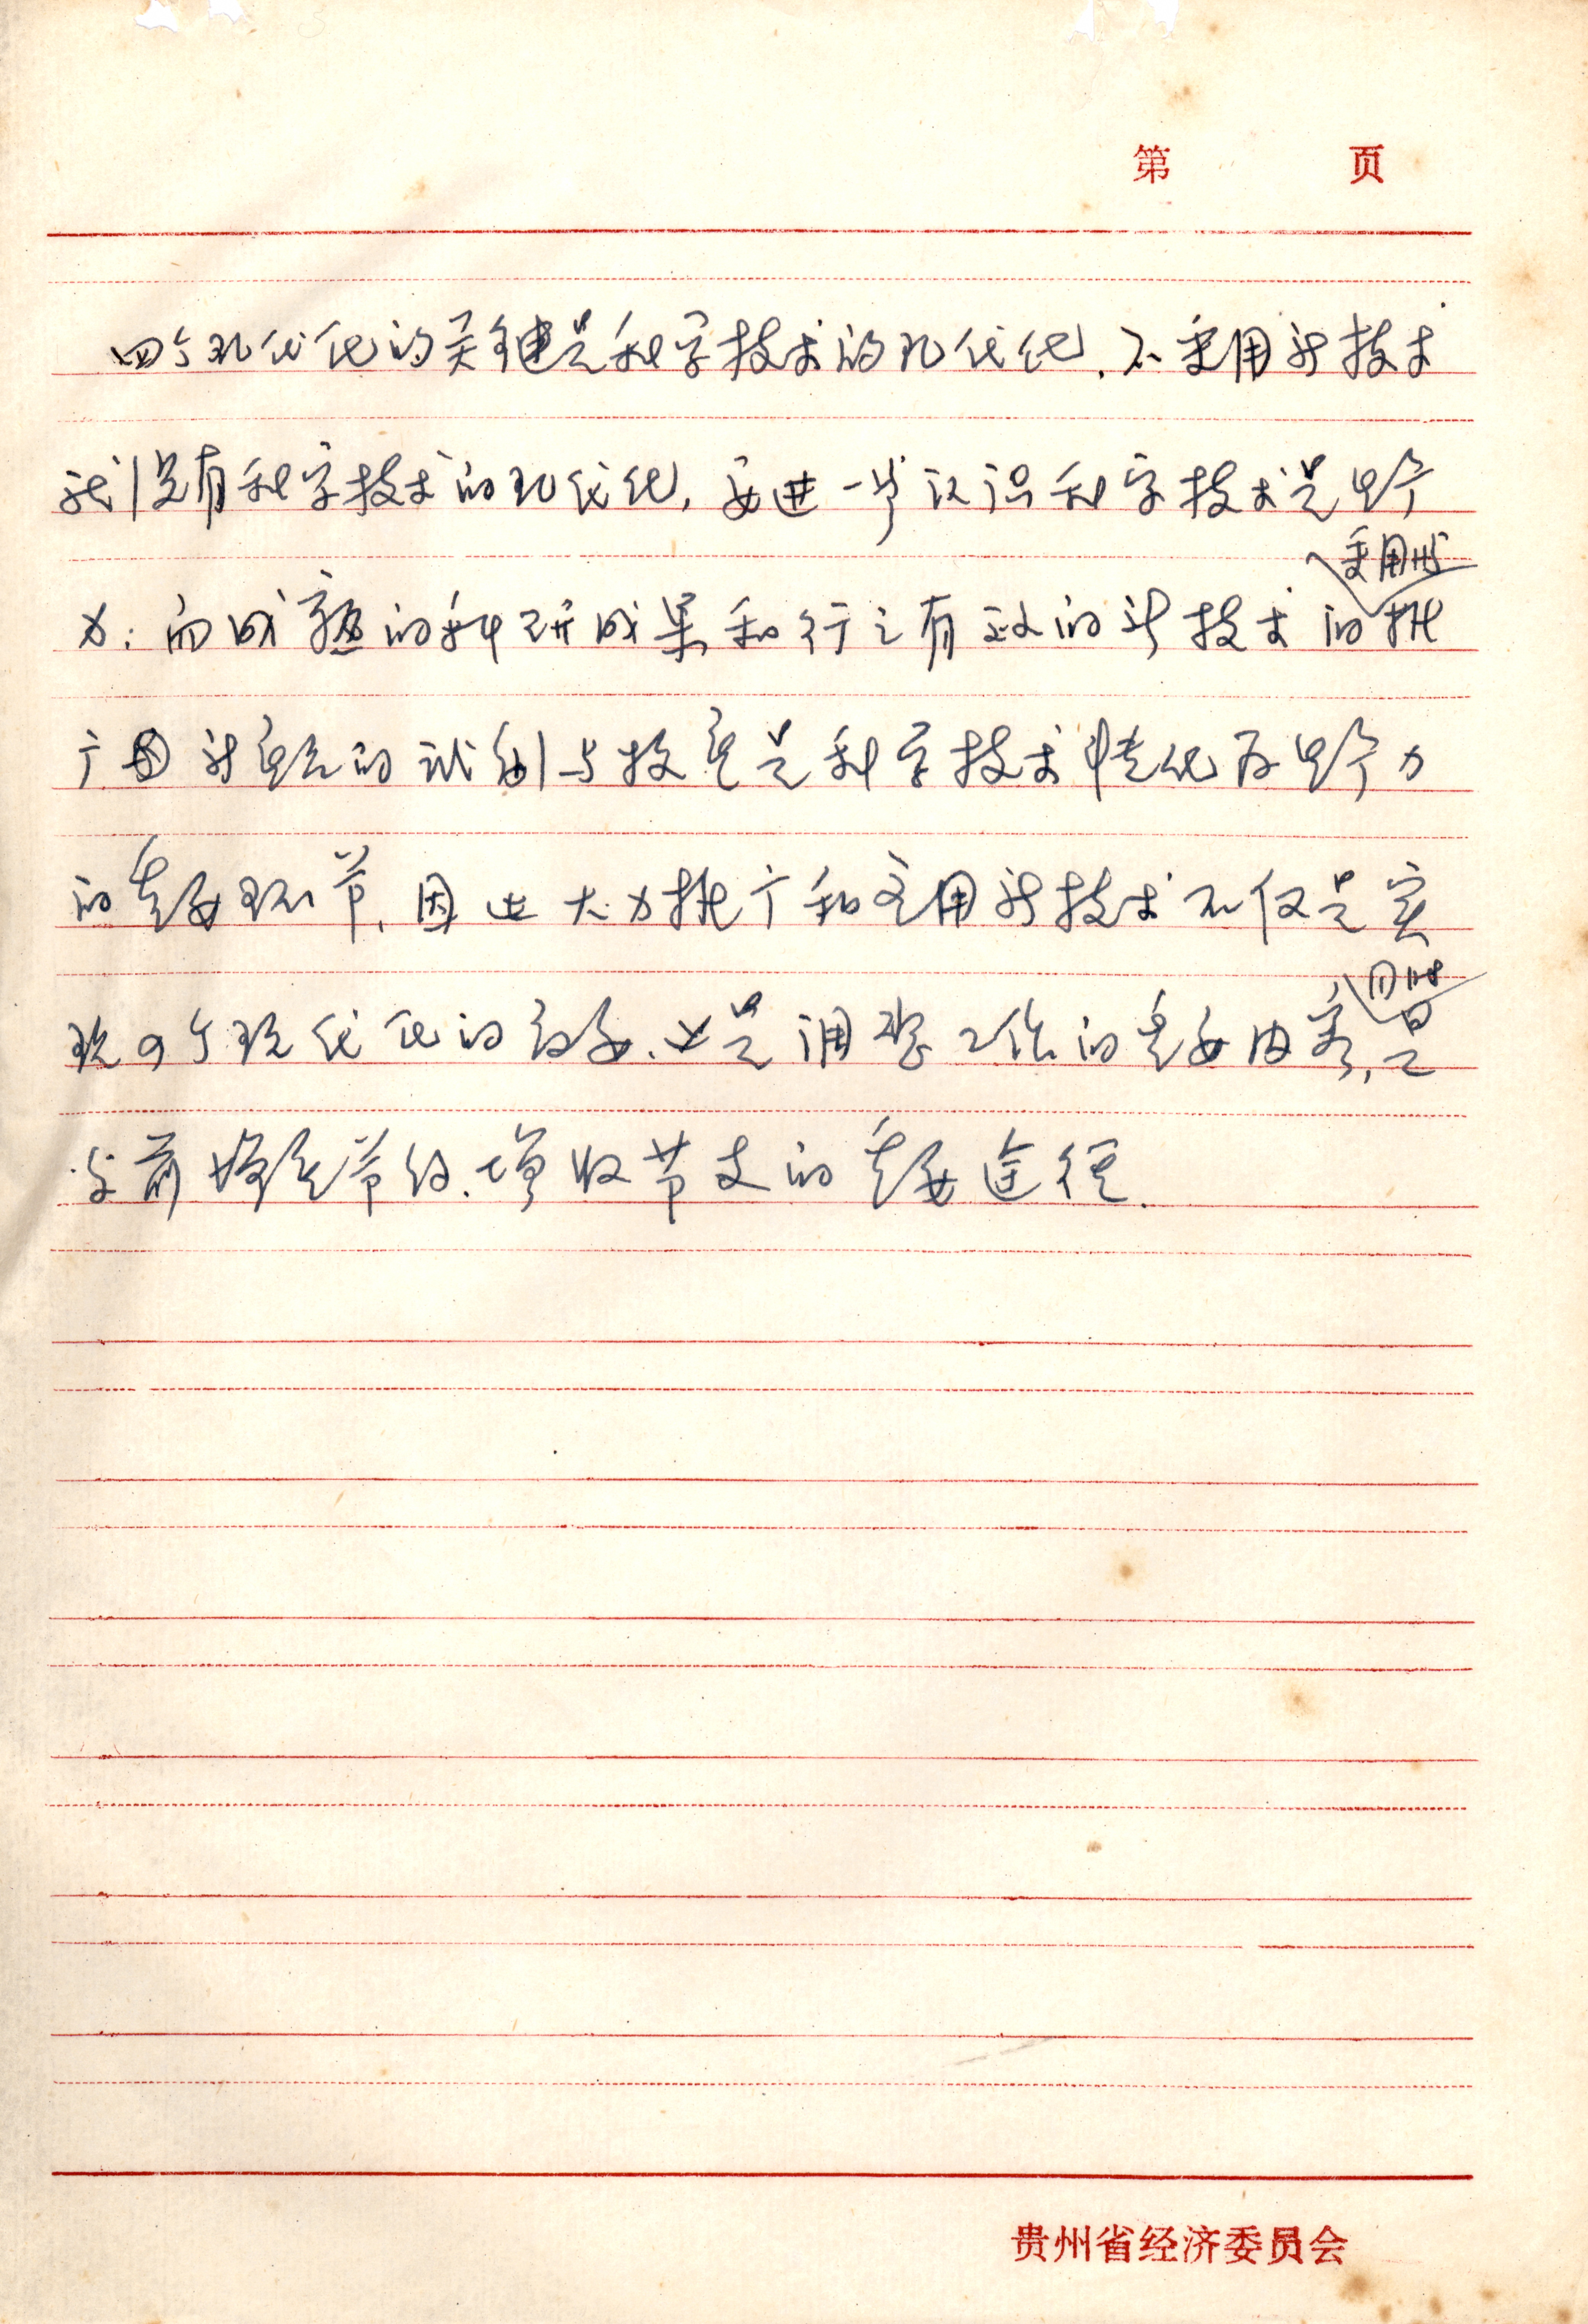 第 页
四个现代化的关键是科学技术的现代化,不采用新技术
就没有科学技术的现代化,要进一步认识科学技术是生产
力:而成熟的科研成果和行之有效的新技术的推
采用和
广 新产品的试制与投产是科学技术转化为生产力
的重要环节,因此大力推广和应用新技术不仅是实
现四个现代化的需要、也是调整工作的重要内容,是
同时
当前增产节约、增收节支的重要途径.
贵州省经济委员会